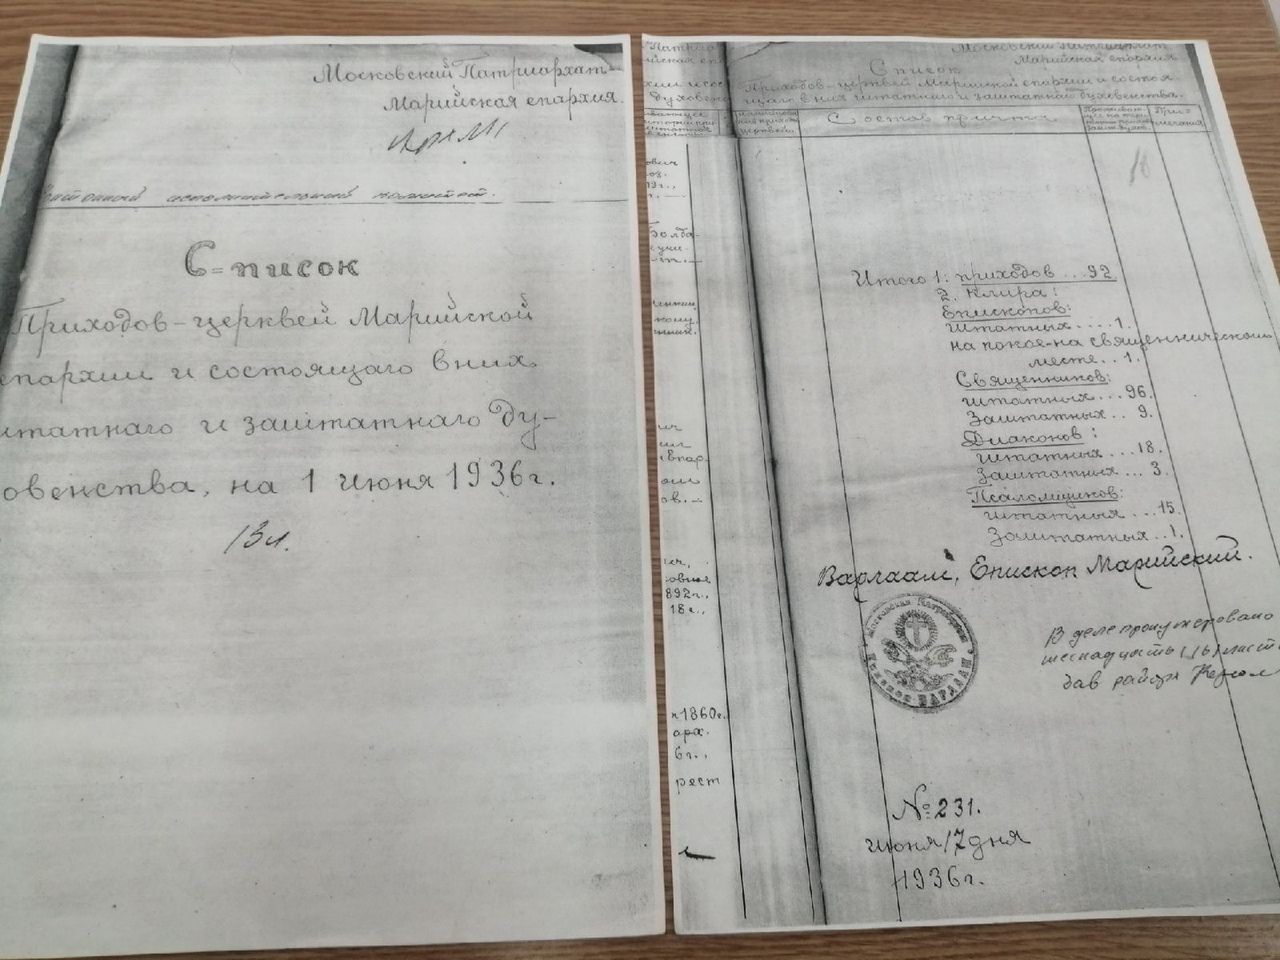 Московский Патриархат-
Марийская епархия.
исполнительный комитет.
Список
Приходов-церквей Марийской
епархии и состоящаго в них
штатнаго и заштатнаго ду-
ховенства, на 1 Июня 1936г.
13л.
Московский Патриархат
Марийская епархия
Список
Приходов-церквей Марийской епархии и состоя-
щаго в них штатнаго и заштатнаго духовенства.
Состав причта
При-
мечания
Итого 1: приходов...92
2. клира:
Епископов:
штатных....1.
на покое-на священническом
месте..1.
Священников:
штатных...96.
Заштатных..9.
Диаконов:
штатных...18.
Заштатных...3.
Псаломщиков:
штатных...15.
Заштатных..1.
Варлаам, Епископ Марийский.
Московская Патриархия
Епископ ВАРЛААМ
В деле пронумеровано
шеснадцать (16) лист
№231.
Июня 17 дня
1936г.
ович
Болба-
892г.,
18г.,
1860г.
арх.
6г.,
рест